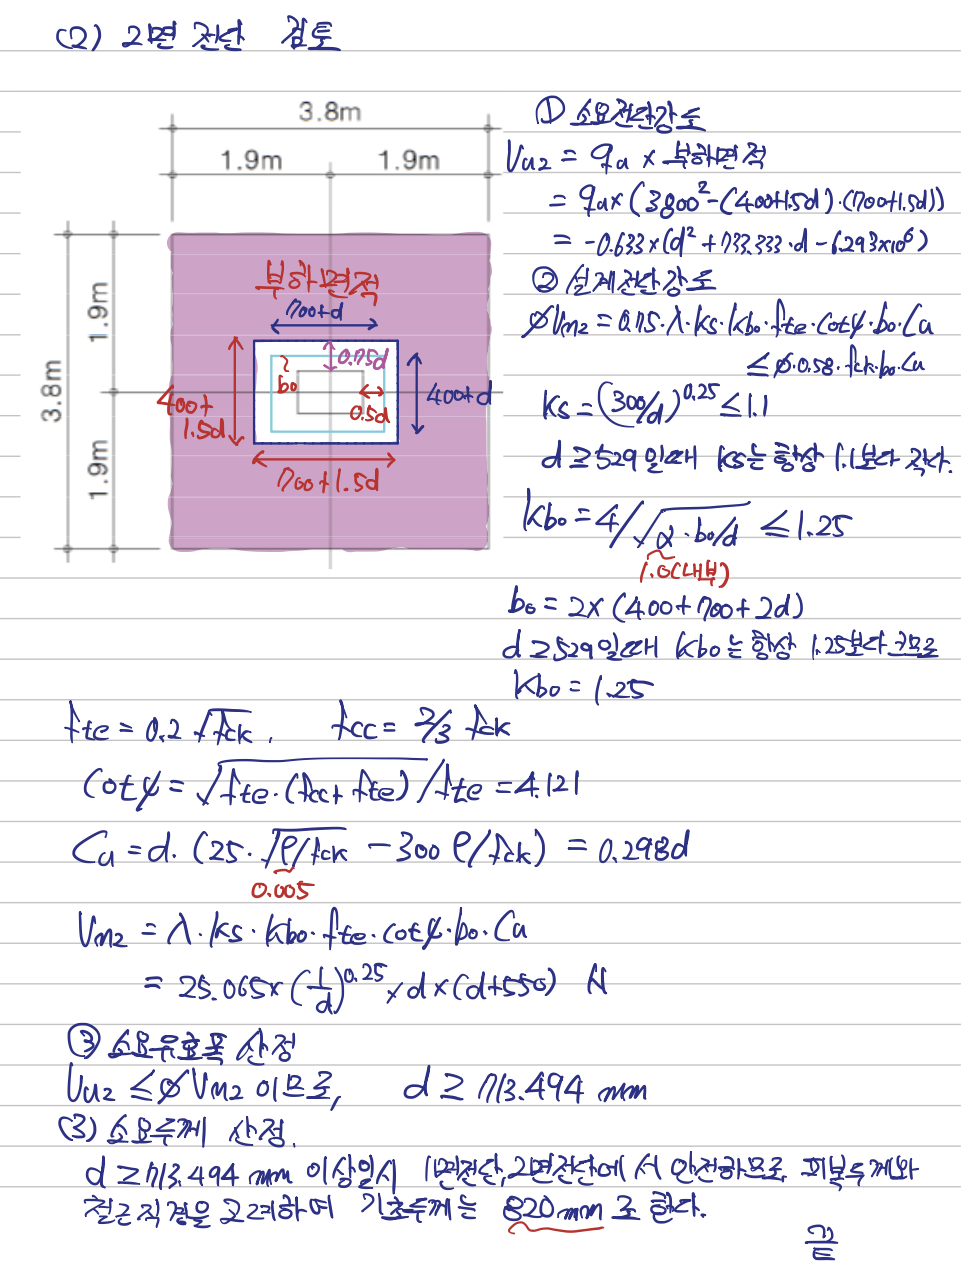 (2) 2면 전단 검토
3.8m
1.9m 1.9m
3.8m
1.9m
1.9m
부하면적
700+d
0.75d
b₀
0.5d
400+d
400+
1.5d
700+1.5d
① 소요전단강도
Vu2 = qu × 부하면적
= qu×(3800²-(400+1.5d)·(700+1.5d))
= -0.633×(d²+733.333·d-6.293×10⁶)
② 설계전단강도
φVn2 = 0.75·λ·ks·kbo·fte·cotψ·bo·Cu
≤ φ·0.58·fck·bo·Cu
ks = (300/d)^0.25 ≤ 1.1
d ≥ 529일때 ks는 항상 1.1보다 작다.
kbo = 4/√(α·bo/d) ≤ 1.25
1.0(내부)
bo = 2×(400+700+2d)
d ≥ 529일때 kbo는 항상 1.25보다 크므로
kbo = 1.25
fte = 0.2√fck, fcc = 2/3 fck
cotψ = √(fte·(fcc+fte))/fte = 4.121
Cu = d·(25·√(ρ/fck) - 300 ρ/fck) = 0.298d
0.005
Vn2 = λ·ks·kbo·fte·cotψ·bo·Cu
= 25.065×(1/d)^0.25×d×(d+550) N
③ 소요유효폭 산정
Vu2 ≤ φVn2 이므로, d ≥ 713.494 mm
(3) 소요두께 산정.
d ≥ 713.494 mm 이상일시 1면전단, 2면전단에서 안전하므로 피복두께와
철근직경을 고려하여 기초두께는 820mm로 한다.
끝